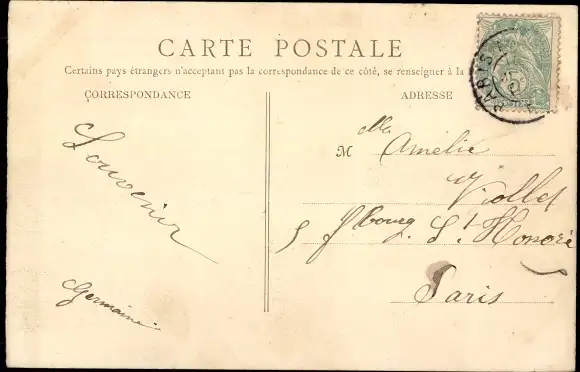 CARTE POSTALE
Certains pays étrangers n'acceptant pas la correspondance de ce côté, se renseigner à la
CORRESPONDANCE
ADRESSE
Souvenir
Germaine
Mlle Amelie
Viollet
5 fbourg St Honoré
Paris
PARIS